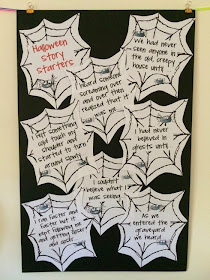 Halloween
Story
starters
We had never
seen anyone in
the old, creepy
house until
I heard someone
screaming over
and over then
realized that it
was me
I felt something
ugly touch my
shoulder and I
started to turn
around slowly
I had never
believed in
ghosts until
I couldn't
believe what I
was seeing.
I ran faster and
faster but it
kept following me
and getting closer
and closer
As we
entered the
graveyard
we heard